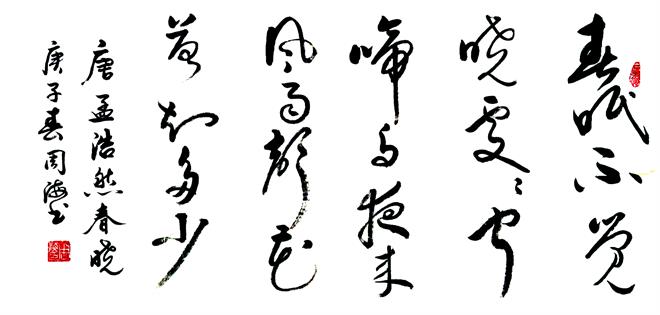 春眠不觉
晓處々闻
啼鸟夜来
风雨聲花
落知多少
唐孟浩然春晓
庚子春周海书